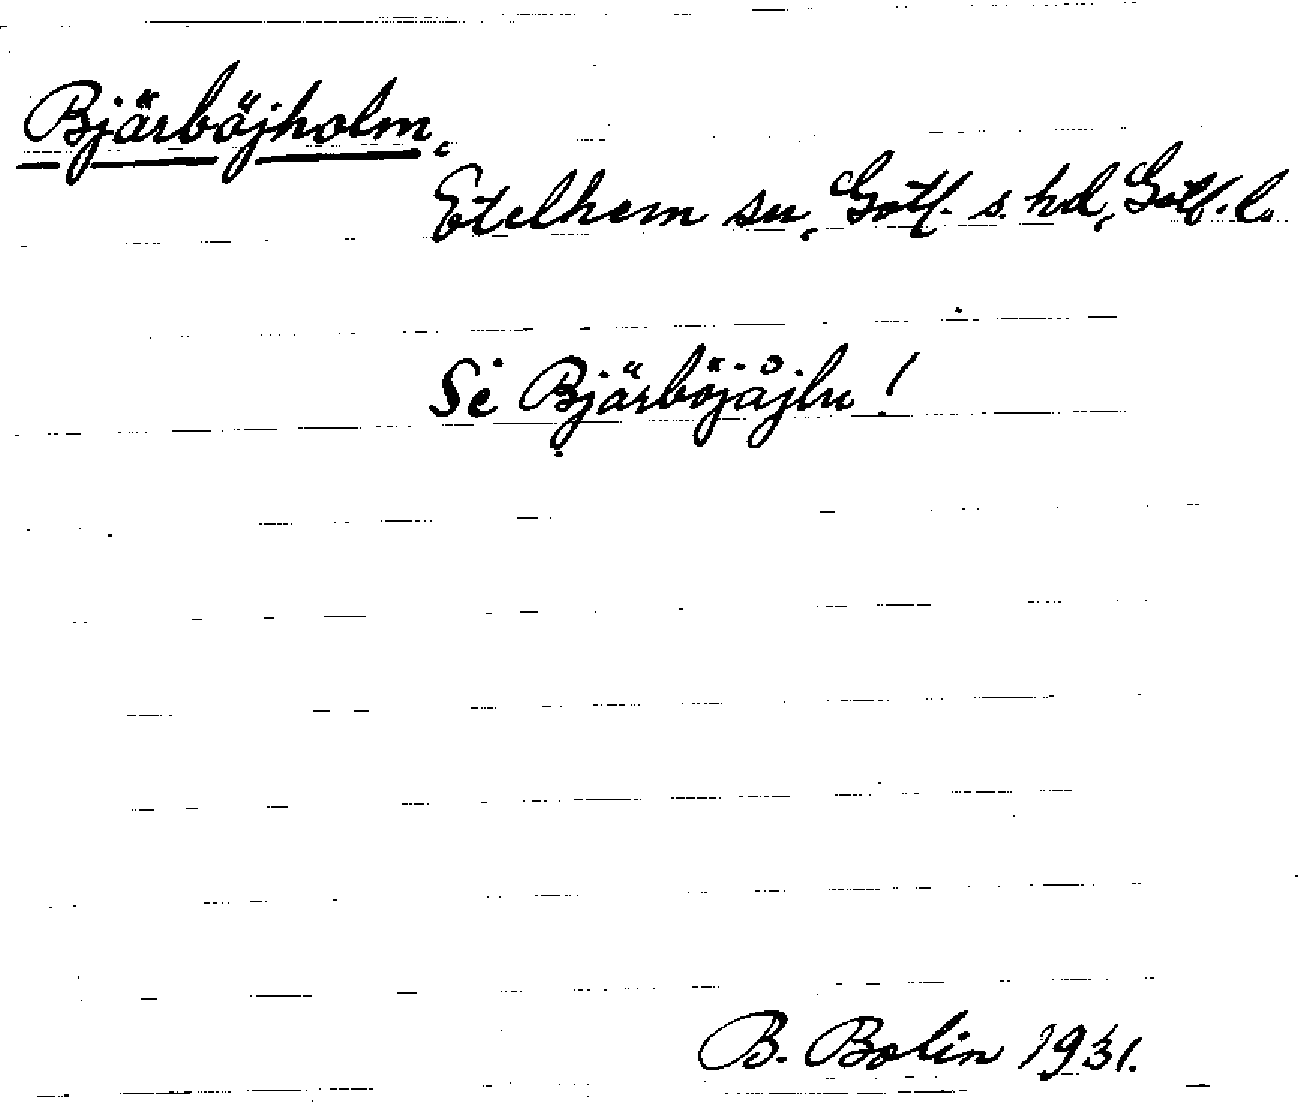 Bjärböjholm,
Etelhem sn, Gotl. s. hd, Gotl. l.
Se Bjärböjåjlu!
B. Bolin 1931.